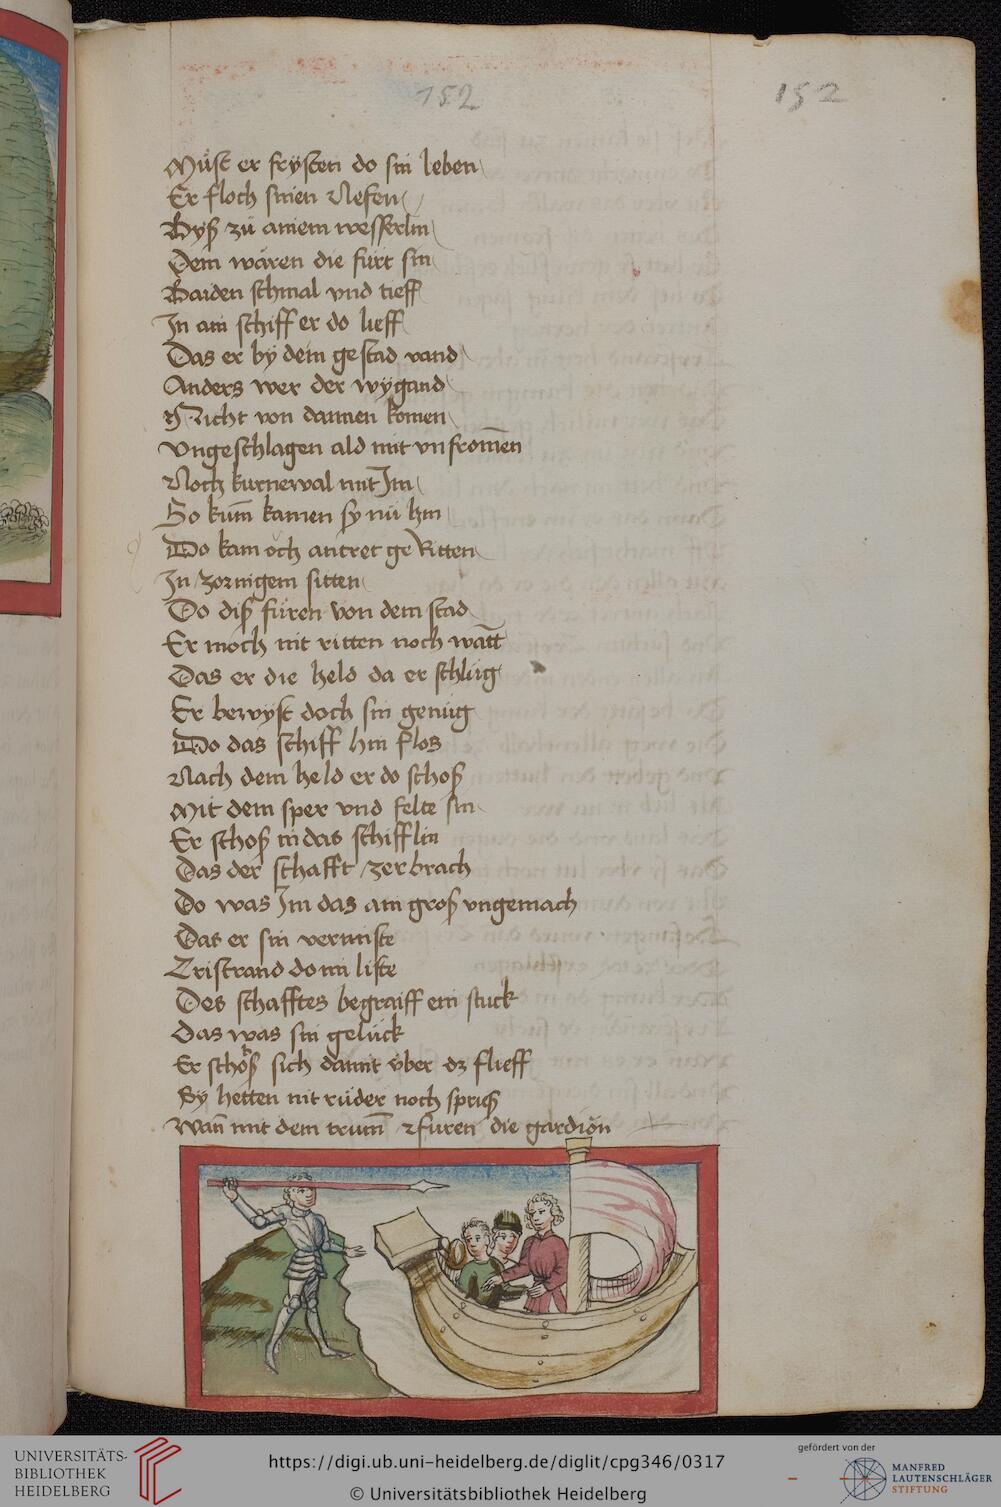 152
152
Müst er frysten do sin leben
Er floch sinen Nefen
Bys zü ainem wesserlin
Dem wären die fürt sin
Baiden schmal vnd tieff
In ain schiff er do lieff
Das er by dem gestad vand
Anders wer der wygand
Nicht von dannen komen
Vngeschlagen ald mit vnfromen
Noch kurnewal mit Im
So kum kamen sy nü hin
Do kam och antret geRitten
In zornigem sitten
Do diß füren von dem stad
Er moch nit ritten noch watt
Das er die held da er schlüg
Er bewyst doch sin genüg
Do das schiff hin flos
Nach dem held er do schoß
Mit dem sper vnd felte sin
Er schoß in das schifflin
Das der schafft zerbrach
Do was Im das ain groß vngemach
Das er sin vermiste
Tristrand do mi liste
Des schafftes begraiff ein stuck
Das was sin gelück
Er sich damit über dz flieff
Sy hetten nit rüder noch
Wan mit dem trum füren die
UNIVERSITÄTS-
BIBLIOTHEK
HEIDELBERG
https://digi.ub.uni-heidelberg.de/diglit/cpg346/0317
© Universitätsbibliothek Heidelberg
gefördert von der
MANFRED
LAUTENSCHLÄGER
STIFTUNG